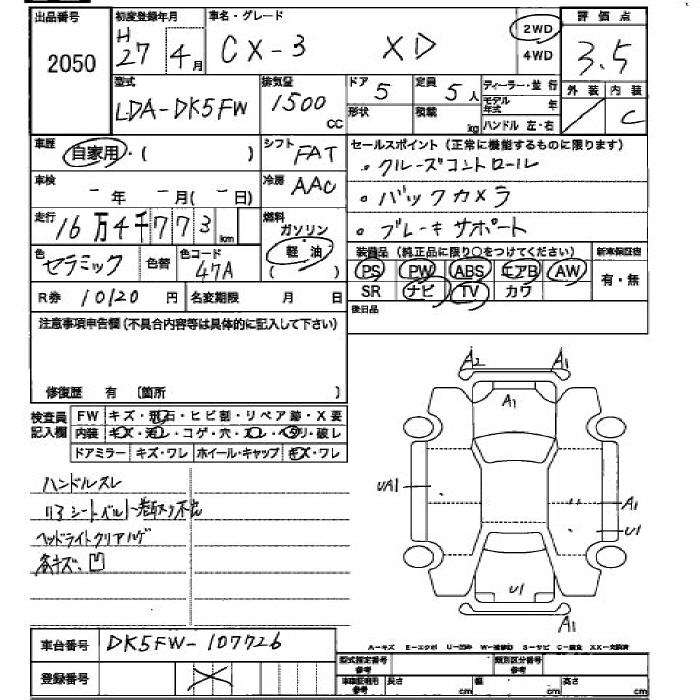 出品番号 初度登録年月 車名・グレード 2WD 評価点
2050 H27年 4月 CX-3 XD 4WD 3.5
型式 排気量 ドア 定員 ディーラー・並行 外装 内装
LDA-DK5FW 1500 CC 5 5人 モデル年式 年 C
形状 積載 kg ハンドル 左・右
車歴 自家用・( ) シフト FAT セールスポイント(正常に機能するものに限ります)
・クルーズコントロール
車検 - 年 - 月( - )日 冷房 AAC ・バックカメラ
走行 16万4千773km 燃料 ガソリン 軽油 ( ) ・ブレーキサポート
色 セラミック 色替 色コード 47A 装備品(純正品に限り○をつけてください) 新車保証書
PS PW ABS エアB AW 有・無
R券 10120円 名変期限 月 日 SR ナビ TV カワ
後日品
注意事項申告欄(不具合内容等は具体的に記入して下さい)
修復歴 有 〔箇所 〕
検査員記入欄 FW キズ・飛石・ヒビ割・リペア跡・X要
内装 キズ・汚レ・コゲ・穴・スレ・ヘタリ・破レ
ドアミラー キズ・ワレ ホイール・キャップ キズ・ワレ
A2 A1
A1
ハンドルスレ
UA1 A1
U1
ヘッドライトクリアハゲ
各キズ、凹
U1
A1
車台番号 DK5FW-107726
A-キズ E-エクボ U-凹み W-補修跡 S-サビ C-腐食 XX-交換済
登録番号
型式指定番号 参考 類別区分番号 参考
車検証明用 参考 長さ cm 幅 cm 高さ cm